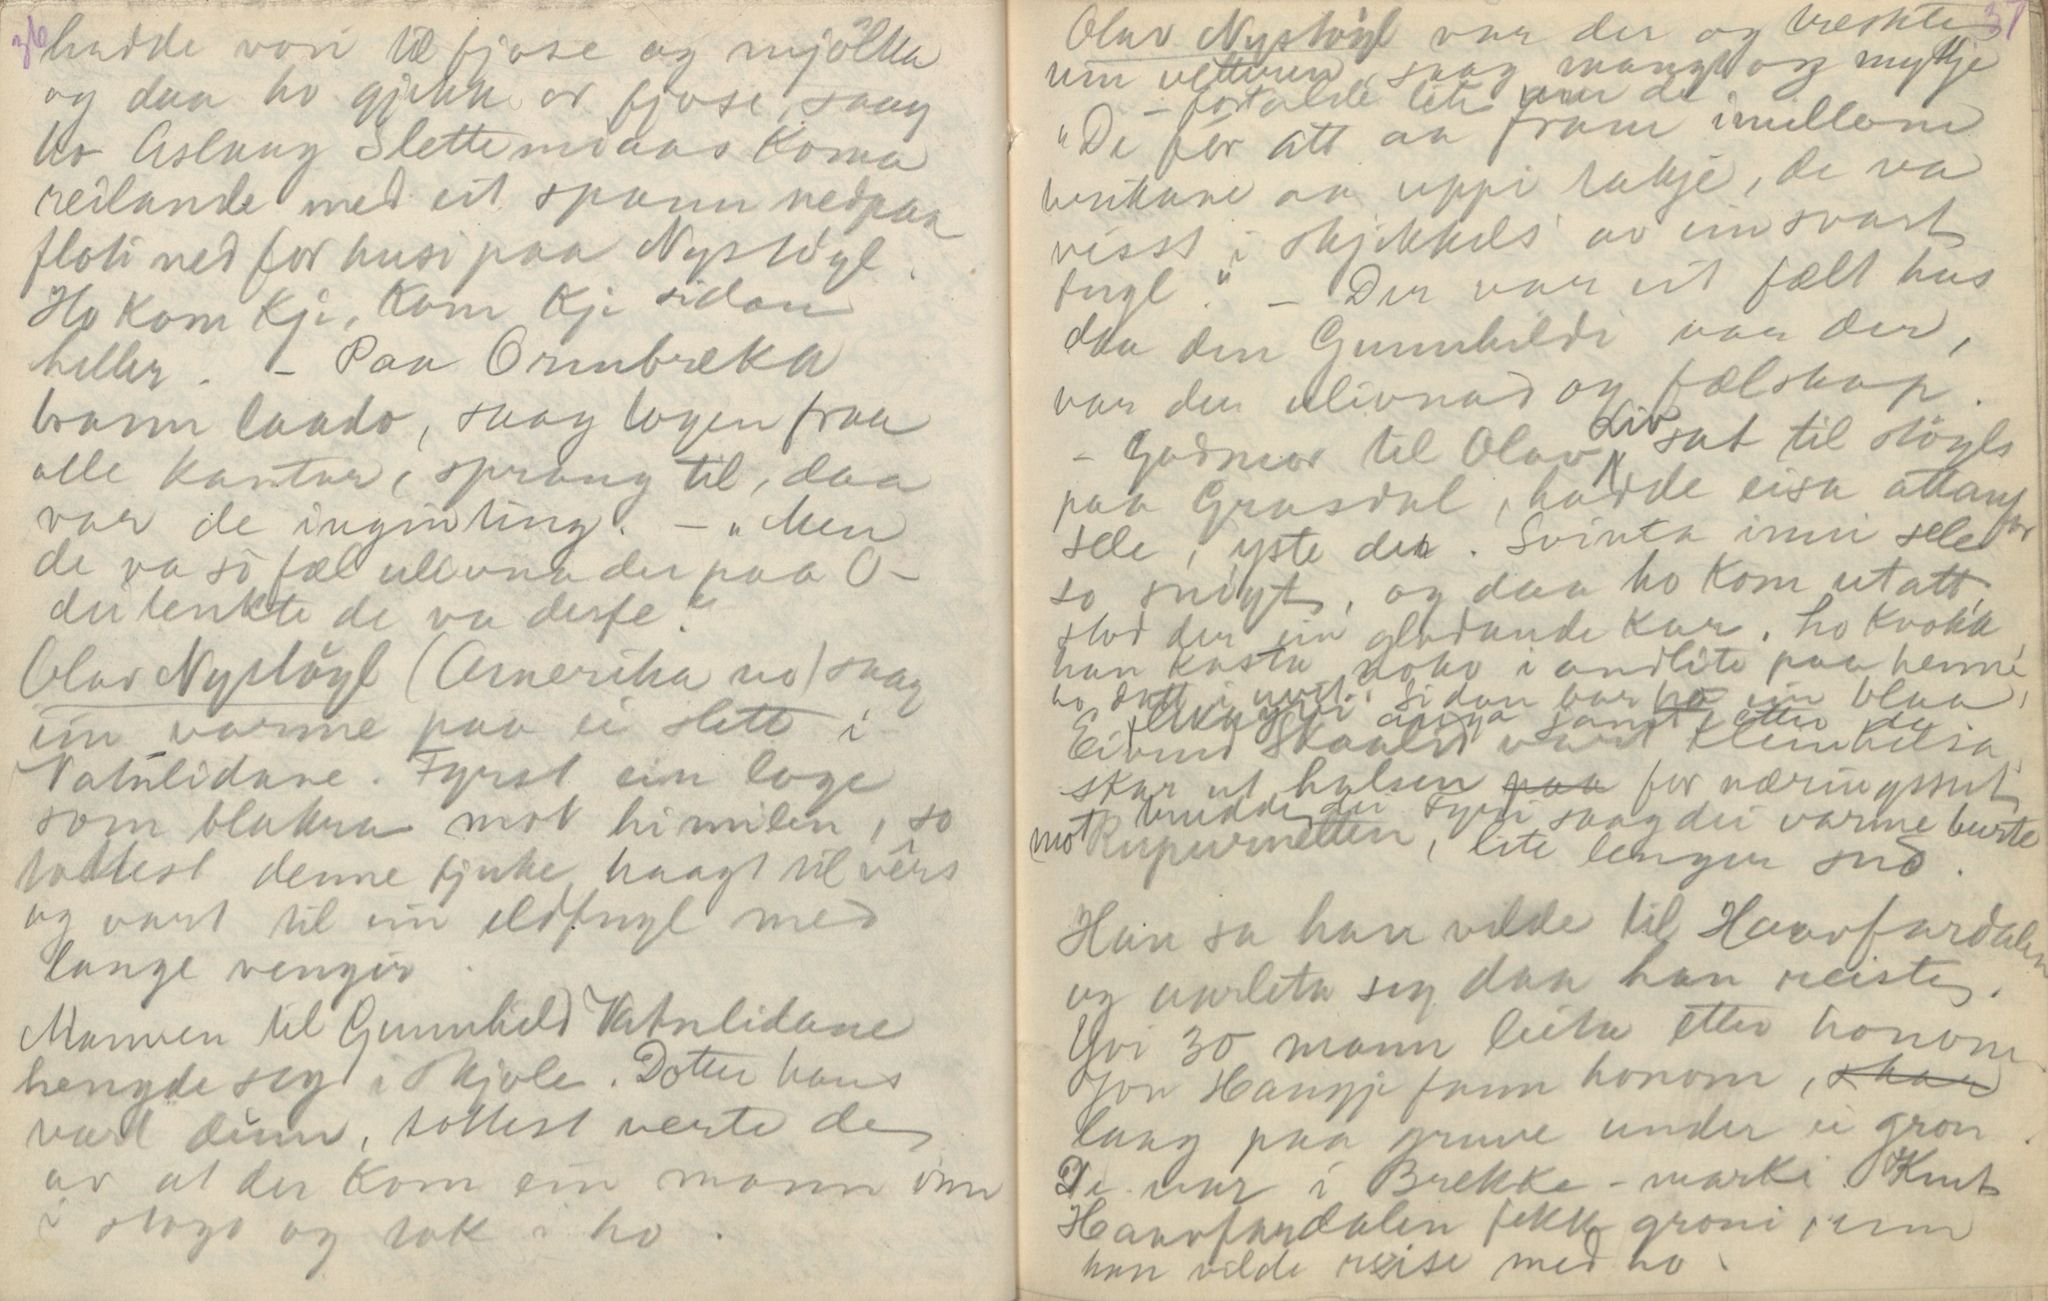 36
hadde vori til fjose og mjölka
og daa ho gjekk or fjose, saag
ho Aslaug Slettemoaas koma
reilande med eit spann nedpaa
floti ned for husi paa Nystöyl.
Ho kom kji, kom kji sidan
heller. – Paa Ormbrekka
brann laado, saag logen fraa
alle kantar, sprang til, daa
var de ingin ting. – "Men
de va so fæl ulivnad der paa O –
dei tenkte de va derfe."
Olav Nystöyl (Amerika no) saag
ein varme paa ei slett i
Vatnlidane. Fyrst ein loge
som blakra mot himilen, so
tottest denne fjuke haagt til vêrs
og vart til ein eldfugl med
lange vengir.
Mannen til Gunnhild Vatnlidane
hengde seg i Skjole. Dotter hans
vart dimm, tottest verte de
av at der kom ein mann inn
i stogo og tok i ho.
37
Olav Nystöyl var der og vreskte
um vetteren, saag mangt og mykje
– fortalde lite um de.
"De fór att aa fram imillom
benkane aa uppi takje, de va
visst i skjikkels' av ein svart
fugl." – Der var eit fælt hus
daa den Gunnhildi var der,
var der ulivnad og fælskap.
– Godmor til Olav, Liv sat til stöyls
paa Grasdal, hadde eisa attanfor
sele, yste der. Svinta inni sele
so snögt, og daa ho kom utatt,
stod der ein glodande kar. Ho kvakk
han kasta noko i andlite paa henni
ho datt i uvit. Sidan var ho ein blaa
Eivind Skaalid vart kleinhelsa
skar ut halsen paa for næringssut
budde der Fyri saag dei varme burte
mot Rupernetten, lite lenger sud.
Han sa han vilde til Haavfardalen
og avleta seg daa han reiste.
Yvi 30 mann leita etter honom
Jon Haugji fann honom, skar
laag paa gruve under ei gron.
De var i Brekke-marki. Knut
Haavfardalen fekk groni, um
han vilde reise med ho.